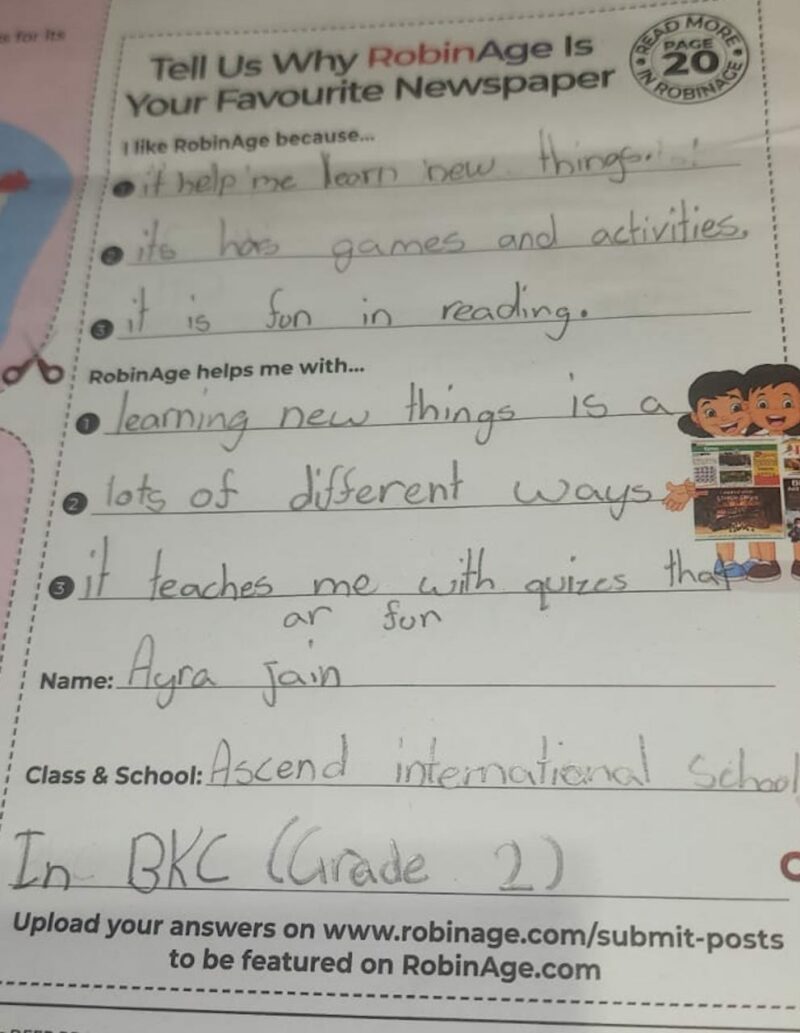 s for its
Tell Us Why RobinAge Is
Your Favourite Newspaper
READ MORE
PAGE
20
IN ROBINAGE
I like RobinAge because...
1 it help me learn new things.
2 its has games and activities.
3 it is fun in reading.
RobinAge helps me with...
1 learning new things is a
2 lots of different ways
3 it teaches me with quizes that
ar fun
Name: Ayra jain
Class & School: Ascend international School
In BKC (Grade 2)
Upload your answers on www.robinage.com/submit-posts
to be featured on RobinAge.com